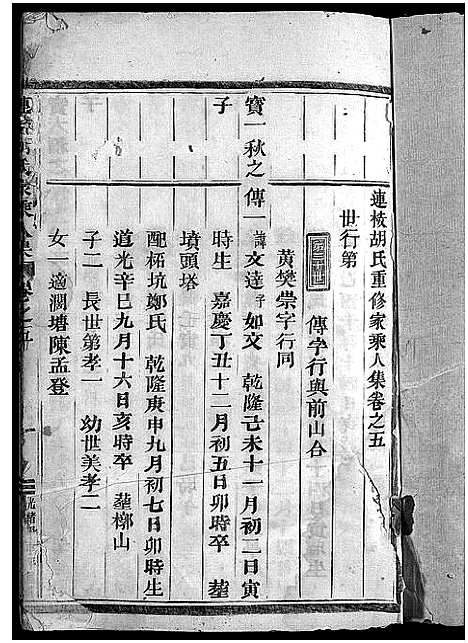 連棱胡氏重修家乘人集卷之五
世行第
傳字行與前山合
黃樊崇字行同
寶一秋之子 傳一 諱文達字如文 乾隆己未十一月初二日寅
時生 嘉慶丁丑十二月初五日卯時卒 塟
墳頭塔
配柘坑鄭氏 乾隆庚申九月初七日卯時生
道光辛巳九月十六日亥時卒 塟櫟山
子二 長世第孝一 幼世美孝二
女一適澗塘陳孟登